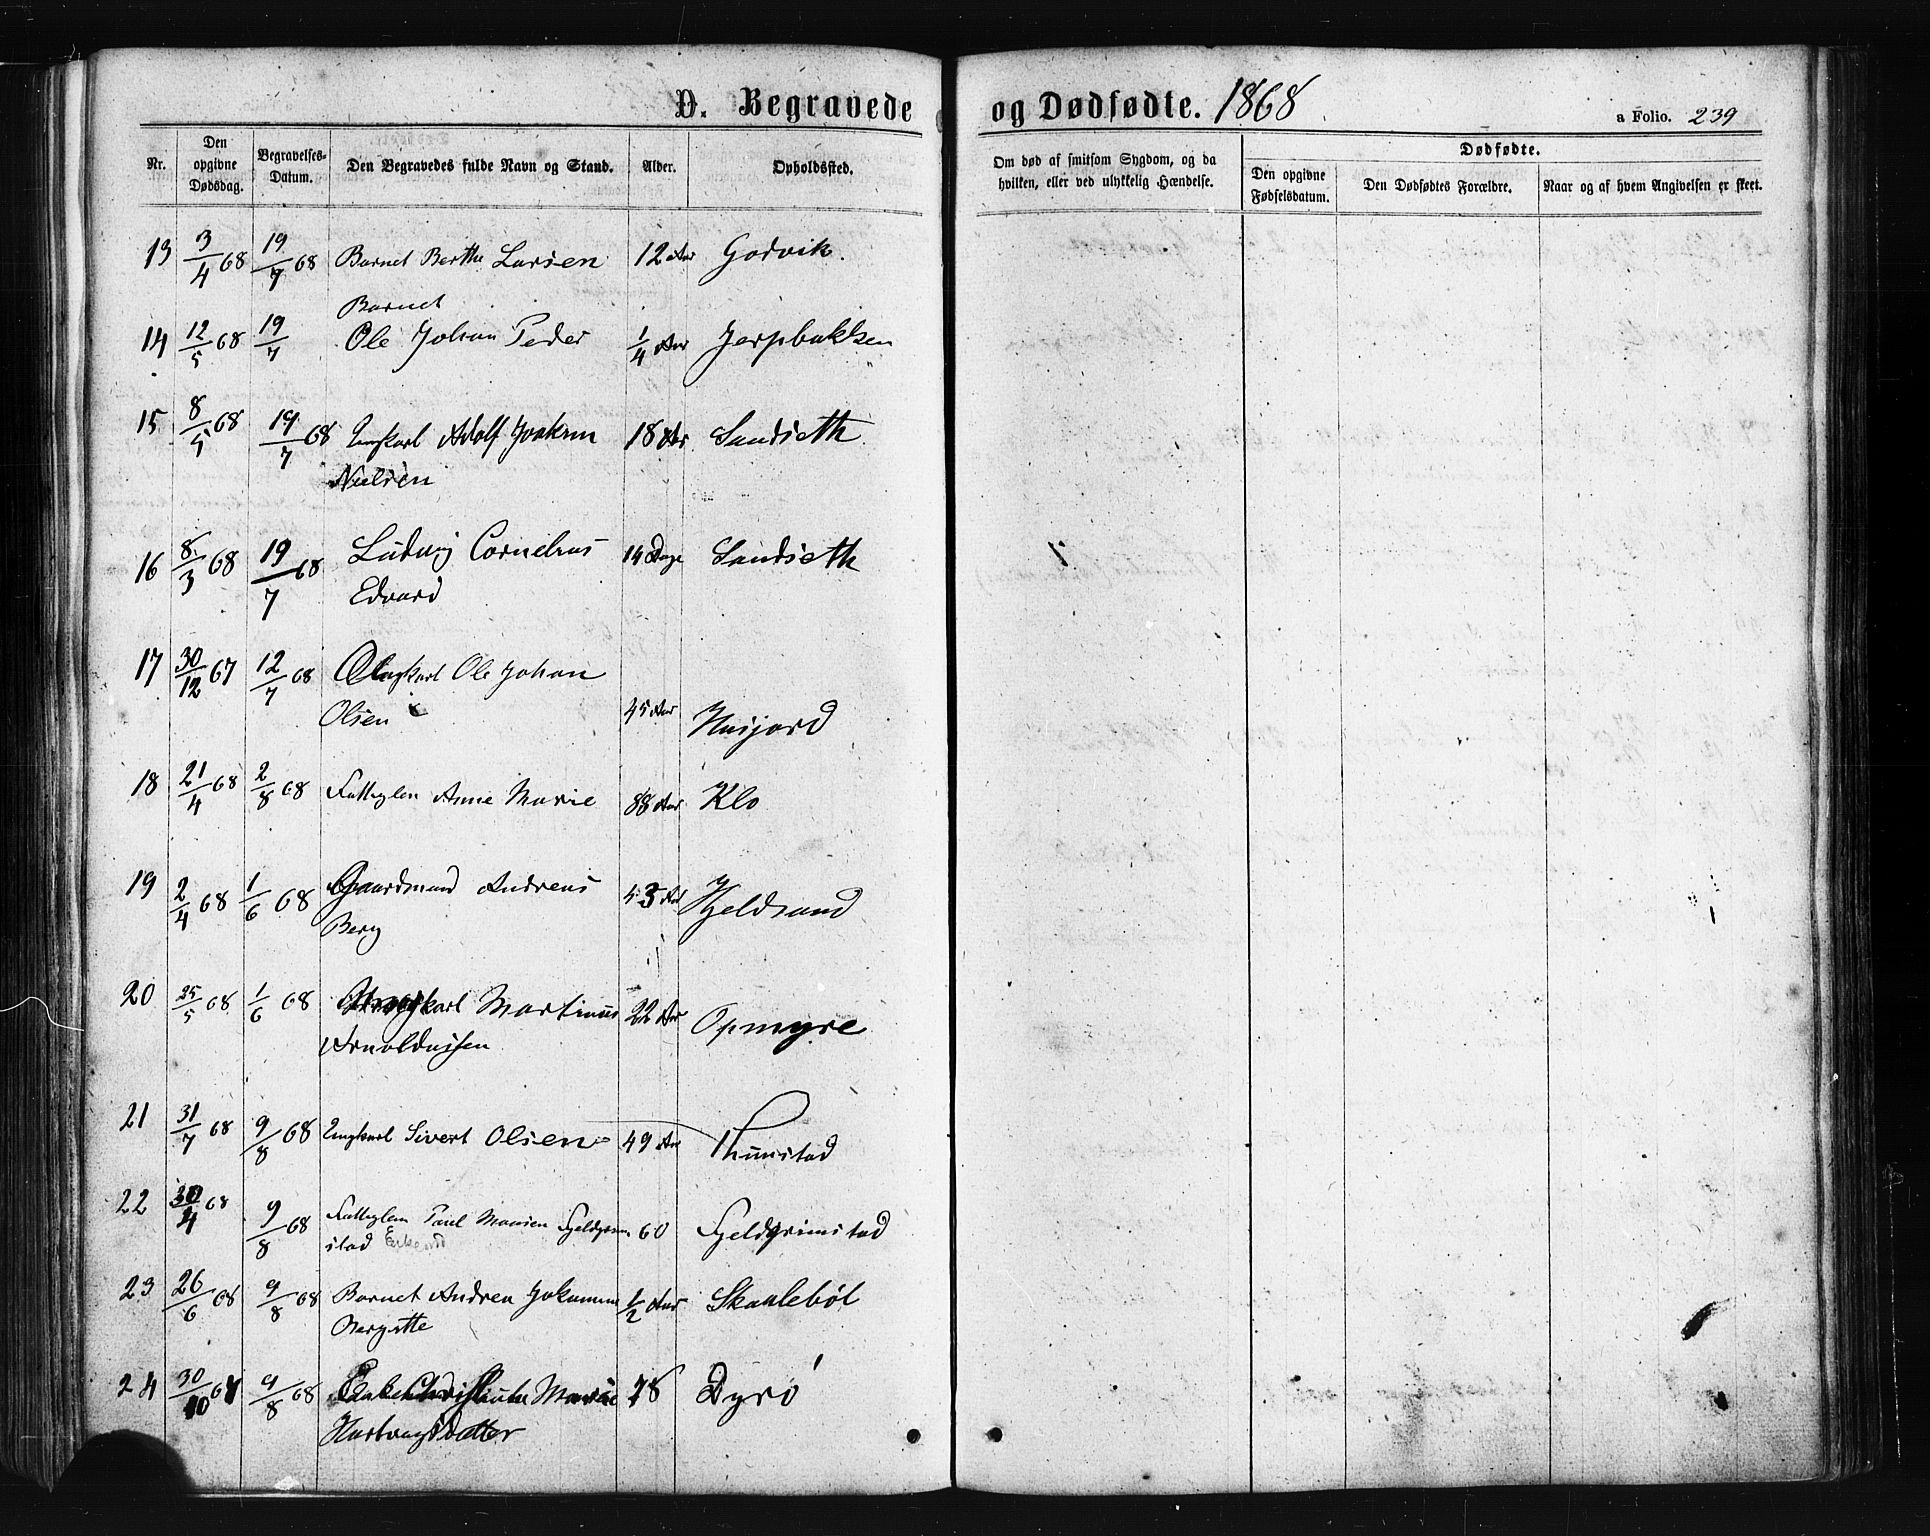 D. Begravede og Dødfødte. 1868
a Folio. 239
Nr. Den opgivne Dødsdag. Begravelses-Datum. Den Begravedes fulde Navn og Stand. Alder. Opholdssted. Om død af smitsom Sygdom, og da hvilken, eller ved ulykkelig Hændelse. Dødfødte. Den opgivne Fødselsdatum. Den Dødfødtes Forældre. Naar og af hvem Angivelsen er skeet.
13 3/4 68 19/7 68 Barnet Berthe Larsen 12 Aar Godvik.
Barnet
14 12/5 68 19/7 Ole Johan Peder 1/4 Aar Jerpbakken
15 8/5 68 19/7 68 Ungkarl Adolf Joakim 18 Aar Sandseth
Nielsen
16 8/3 68 19/7 68 Ludvig Cornelius 14 Dage Sandseth
Edvard
17 30/12 67 12/7 68 Ungkarl Ole Johan
Olsen 45 Aar Husjord
18 21/4 68 2/8 68 Fattiglem Anne Marie 88 Aar Klo
19 2/4 68 1/6 68 Gaardmand Andreas 43 Aar Kjeldsand
Berg
20 25/5 68 1/6 68 Ungkarl Martinus 22 Aar Opmyre
Arnoldussen
21 31/7 68 9/8 68 Ungkarl Sivert Olsen 49 Aar Thunstad
22 30/4 68 9/8 68 Fattiglem Paul Monsen Fjeldgrim- 60 Fjeldgrimstad
stad
23 26/6 68 9/8 68 Barnet Andrea Jokumine 1/2 Aar Skaalebøl
Bergitte
24 30/10 67 9/8 68 Enke Marie 78 Dyrø
Hartvigsdatter